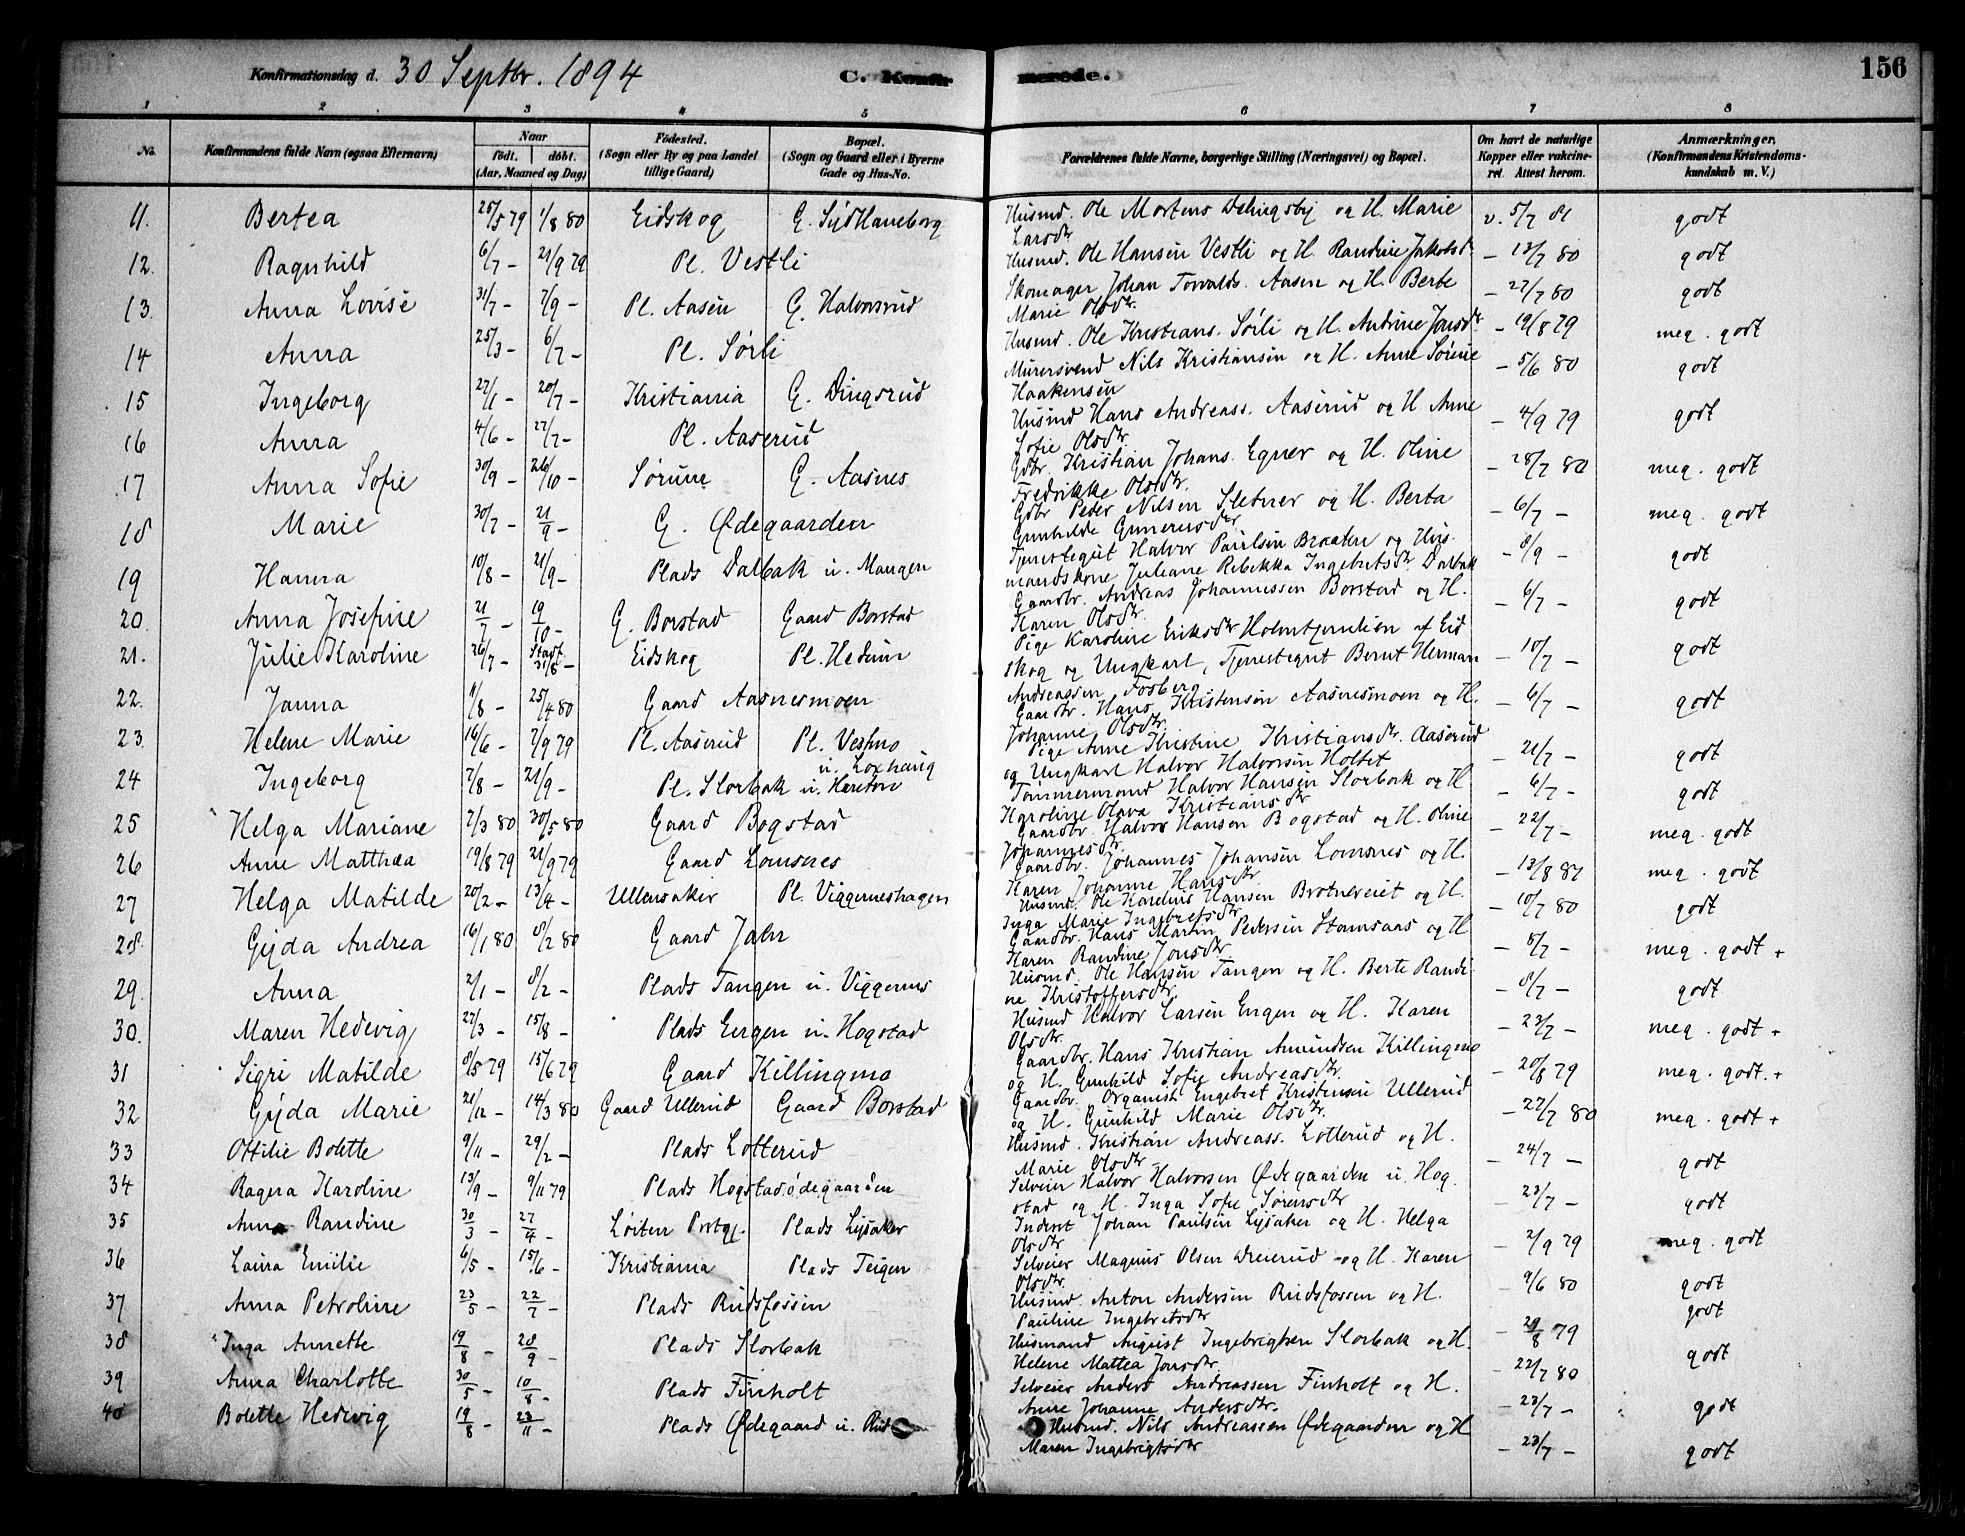 Konfirmationsdag d. 30 Septbr. 1894 C. Konfirmerede. 156
1 2 3 4 5 6 7 8
No. Konfirmandens fulde Navn (ogsaa Efternavn) Naar født. døbt. (Aar, Maaned og Dag) Fødested. (Sogn eller By og paa Landet tillige Gaard) Bopæl. (Sogn og Gaard eller i Byerne Gade og Hus-No. Forældrenes fulde Navne, borgerlige Stilling (Næringsvei) og Bopæl. Om havt de naturlige Kopper eller vakcineret. Attest herom. Anmærkninger. (Konfirmandens Kristendomskundskab m. V.)
11. Bertea 25/5 79 1/8 80 Eidskog G. Syd Haneborg Husmd. Ole Mortens Delingsby og H. Marie Larsdtr v. 5/7 81 godt
12. Ragnhild 6/7 - 21/9 79 Pl. Vestli Husmd. Ole Hansen Vestli og H. Randine Jakobsd. - 13/7 80 godt
13. Anna Lovise 31/7 - 7/9 - Pl. Aasen G. Halvorsrud Skomager Johan Torvalds. Aasen og H. Berte Marie Olsdtr. - 27/7 80 godt
14 Anna 25/3 - 6/7 - Pl. Sørli Husmd. Ole Kristians. Sørli og H. Andrine Jonsdtr - 19/8 79 meg. godt
15 Ingeborg 27/1 - 20/7 - Kristiania G. Dingsrud Murersvend Nils Kristiansen og H. Anne Sørine Haakensen - 5/6 80 godt
16 Anna 4/6 - 27/7 - Pl. Aaserud Husmd Hans Andreass. Aaserud og H Anne Sofie Olsdtr. - 4/9 79 godt
17 Anna Sofie 30/9 - 26/10 - Sørum G. Aasnes Gdbr. Kristian Johans. Egner og H. Oline Fredrikke Olsdtr. - 28/7 80 meg. godt
18 Marie 30/7 - 21/9 - G. Ødegaarden Gdbr Peder Nilsen Sletner og H. Berta Gunhilde Gunersdtr - 6/7 - meg. godt
19 Hanna 10/8 - 21/9 - Plads Dalbak u. Mangen Tjenestegut Halvor Paulsen Braaten og Husmandskone Juliane Rebekka Ingebretsdtr Dalbak - 8/9 - godt
20. Anna Josefine 21/7 - 19/10 - G. Borstad Gaard Borstad Gaardbr. Andreas Johannessen Borstad og H. Karen Olsdtr. - 6/7 - godt
21. Julie Karoline 26/7 - 31/8 - Eidskog Pl. Hedum Pige Karoline Eriksdtr Holmtjernlien af Eidskog og Ungkarl, Tjenestegut Bernt Herman Andreassen Fosberg - 10/7 - godt
22. Janna 11/8 - 25/4 80 Gaard Aasnesmoen Gaardbr. Hans Kristensen Aasnesmoen og H. Johanne Olsdtr. - 6/7 - godt
23. Helene Marie 16/6 - 7/9 79 Pl. Aaserud Pl. Vesmo u. Loxhaug Pige Anne Kristine Kristiansdtr. Aaserud og Ungkarl Halvor Halvorsen Holtet - 21/7 - godt
24 Ingeborg 7/8 - 21/9 - Pl. Slorbak u. Hereton Tømmermand Halvor Hansen Slorbak og H Karoline Olava Kristiansdtr - 6/7 - godt
25 Helga Mariane 2/3 80 30/5 80 Gaard Bogstad Gaardbr. Halvor Hansen Bogstad og H. Oline Johannesdtr. - 22/7 - meg. godt
26 Anne Matthea 19/8 79 21/9 79 Gaard Lomsnes Gaardbr. Johannes Johansen Lomsnes og H. Karen Johanne Hansdtr - 13/8 81 meg. godt
27 Helga Matilde 20/2 - 13/4 - Ullensaker Pl. Viggerneshagen Husmd. Ole Karelius Hansen Brotnereiet og H. Inga Marie Ingebretsdtr. - 10/7 80 godt
28. Gyda Andrea 16/1 80 8/2 80 Gaard Jahr Gaardbr. Hans Martin Pedersen Stomsaas og H Karen Randine Jonsdtr - 5/7 - meg. godt +
29. Anna 2/1 - 8/2 - Plads Tangen u. Viggernes Husmd. Ole Hansen Tangen og H. Berte Randine Kristoffersdtr. - 8/7 - godt
30. Maren Hedevig 27/3 - 15/8 - Plads Engen u. Hogstad Husmd Halvor Larsen Engen og H. Karen Olsdtr. - 23/7 - meg. godt +
31 Sigri Matilde 8/5 79 15/6 79 Gaard Killingmo Gaardbr. Hans Kristian Amundsen Killingmo og H. Gunhild Sofie Andreasdtr. - 20/8 79 meg. godt. +
32 Gyda Marie 21/12 - 14/3 80 Gaard Ullerud Gaard Borstad Gaardbr. Organist Engebret Kristensen Ullerud og H. Gunhild Marie Olsdtr. - 27/7 80 meg. godt +
33 Ottilie Bolette 9/11 - 29/2 - Plads Lotterud Husmd. Kristian Andreass. Lotterud og H. Marie Olsdtr - 24/7 - godt
34 Ragna Karoline 13/9 - 9/11 79 Plads Hogstadødegaarden Selveier Halvor Halvorsen Ødegaarden u. Hogstad og H. Inga Sofie Sørensdtr - 23/7 - godt
35 Anna Randine 30/3 - 27/4 - Løiten Prstgj. Plads Lysaker Inderst Johan Paulsen Lysaker og H. Helga Olsdtr - 2/9 79 meg. godt
36 Laura Emilie 6/5 - 15/6 - Kristiania Plads Teigen Selveier Magnus Olsen Dreierud og H. Karen Olsdtr. - 9/6 80 godt
37 Anna Petroline 23/5 - 22/7 - Plads Rudsfossen Husmd. Anton Andersen Rudsfossen og H. Pauline Ingebretsdtr - 29/8 79 godt
38 Inga Annette 19/8 - 28/9 - Plads Slorbak Husmand August Ingebrigtsen Slorbak og H. Helene Mattea Jonsdtr. - 22/7 80 godt
39 Anna Charlotte 30/5 - 10/8 - Plads Finholt Selveier Anders Andreassen Finholt og H. Anne Johanne Andersdtr. - 23/7 - godt
40 Bolette Hedevig 19/8 - 23/11 - Plads Ødegaard u. Rud Husmd. Nils Andreassen Ødegaarden og H Maren Ingebrigtsdtr - 23/7 - godt